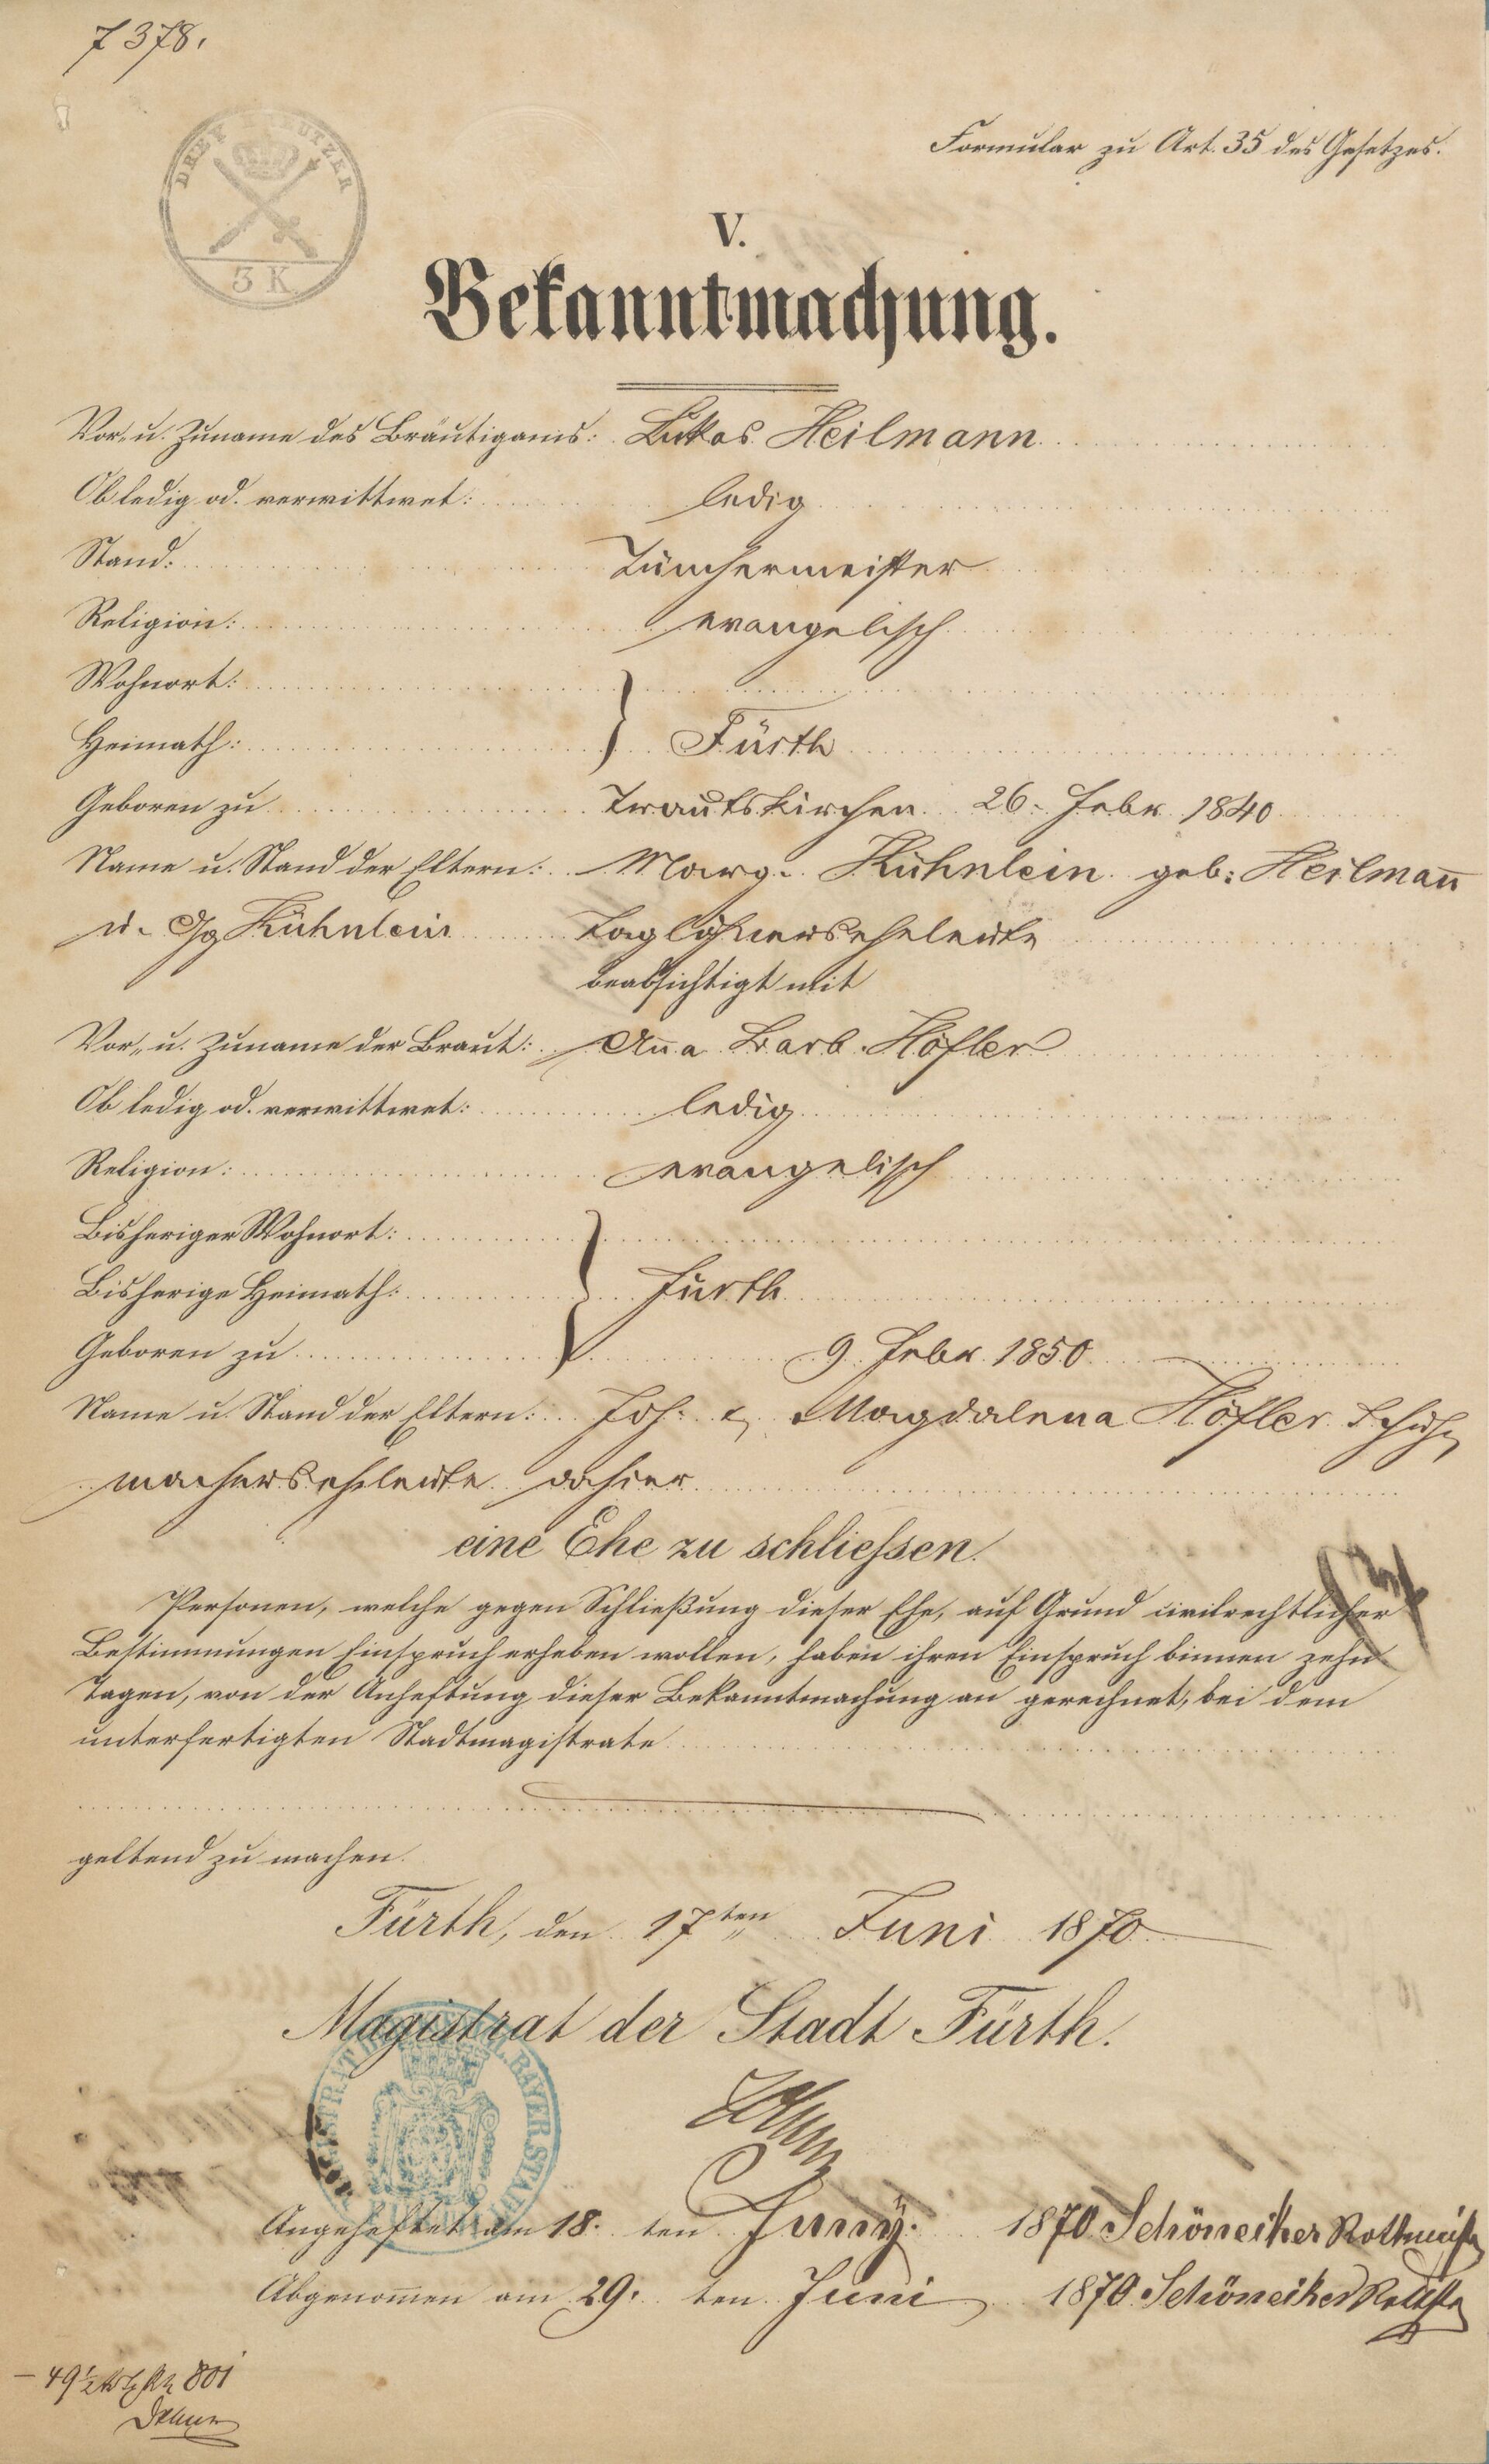 7378.
DREY KREUTZER
3 K
Formular zu Art. 35 des Gesetzes.
V.
Bekanntmachung.
Vor- u. Zuname des Bräutigams: Lukas Heilmann
Ob ledig od. verwittwet: ledig
Stand: Tünchermeister
Religion: evangelisch
Wohnort:
Heimath: Fürth
Geboren zu Trautskirchen 26. Febr 1840
Name u. Stand der Eltern: Marg. Kühnlein geb: Heilmann̄
u. Gg Kühnlein Taglöhnerseheleute
beabsichtigt mit
Vor- u. Zuname der Braut: Anna Barb. Höfler
Ob ledig od. verwittwet: ledig
Religion: evangelisch
Bisheriger Wohnort:
Bisherige Heimath: Fürth
Geboren zu 9. Febr. 1850
Name u. Stand der Eltern: Joh. & Magdalena Höfler Schuh-
macherseheleute dahier
eine Ehe zu schliessen.
Personen, welche gegen Schließung dieser Ehe, auf Grund civilrechtlicher
Bestimmungen Einspruch erheben wollen, haben ihren Einspruch binnen zehn
Tagen, von der Anheftung dieser Bekanntmachung an gerechnet, bei dem
unterfertigten Stadtmagistrate
geltend zu machen.
Fürth, den 17ten Juni 1870
Magistrat der Stadt Fürth.
BAYER. STADT
Angeheftet am 18. ten Juny. 1870 Schöneiker Rottmeister
Abgenom̄en am 29. ten Juni 1870. Schöneiker Rottstr
801